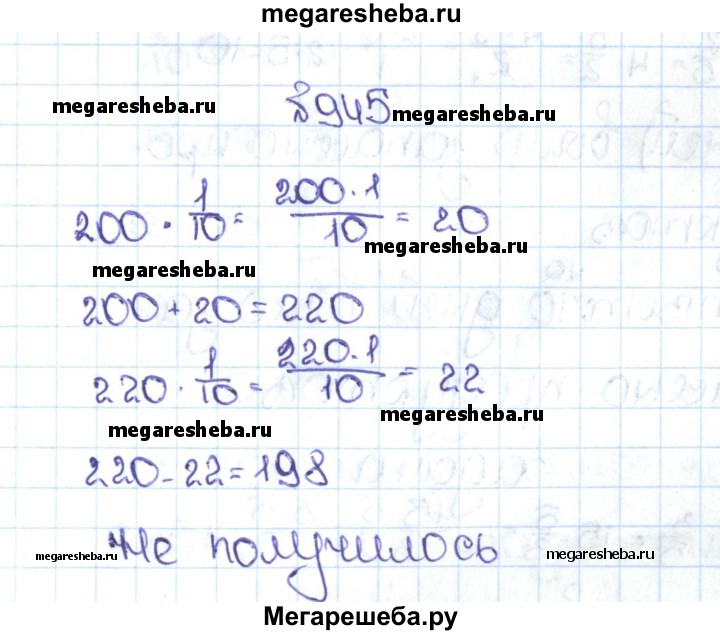 megaresheba.ru
megaresheba.ru №945 megaresheba.ru
200 · 1/10 = 200·1/10 = 20
megaresheba.ru
megaresheba.ru
200 + 20 = 220
220 · 1/10 = 220·1/10 = 22
megaresheba.ru
megaresheba.ru
220 - 22 = 198
megaresheba.ru Не получилось megaresheba.ru
Мегарешеба.ру